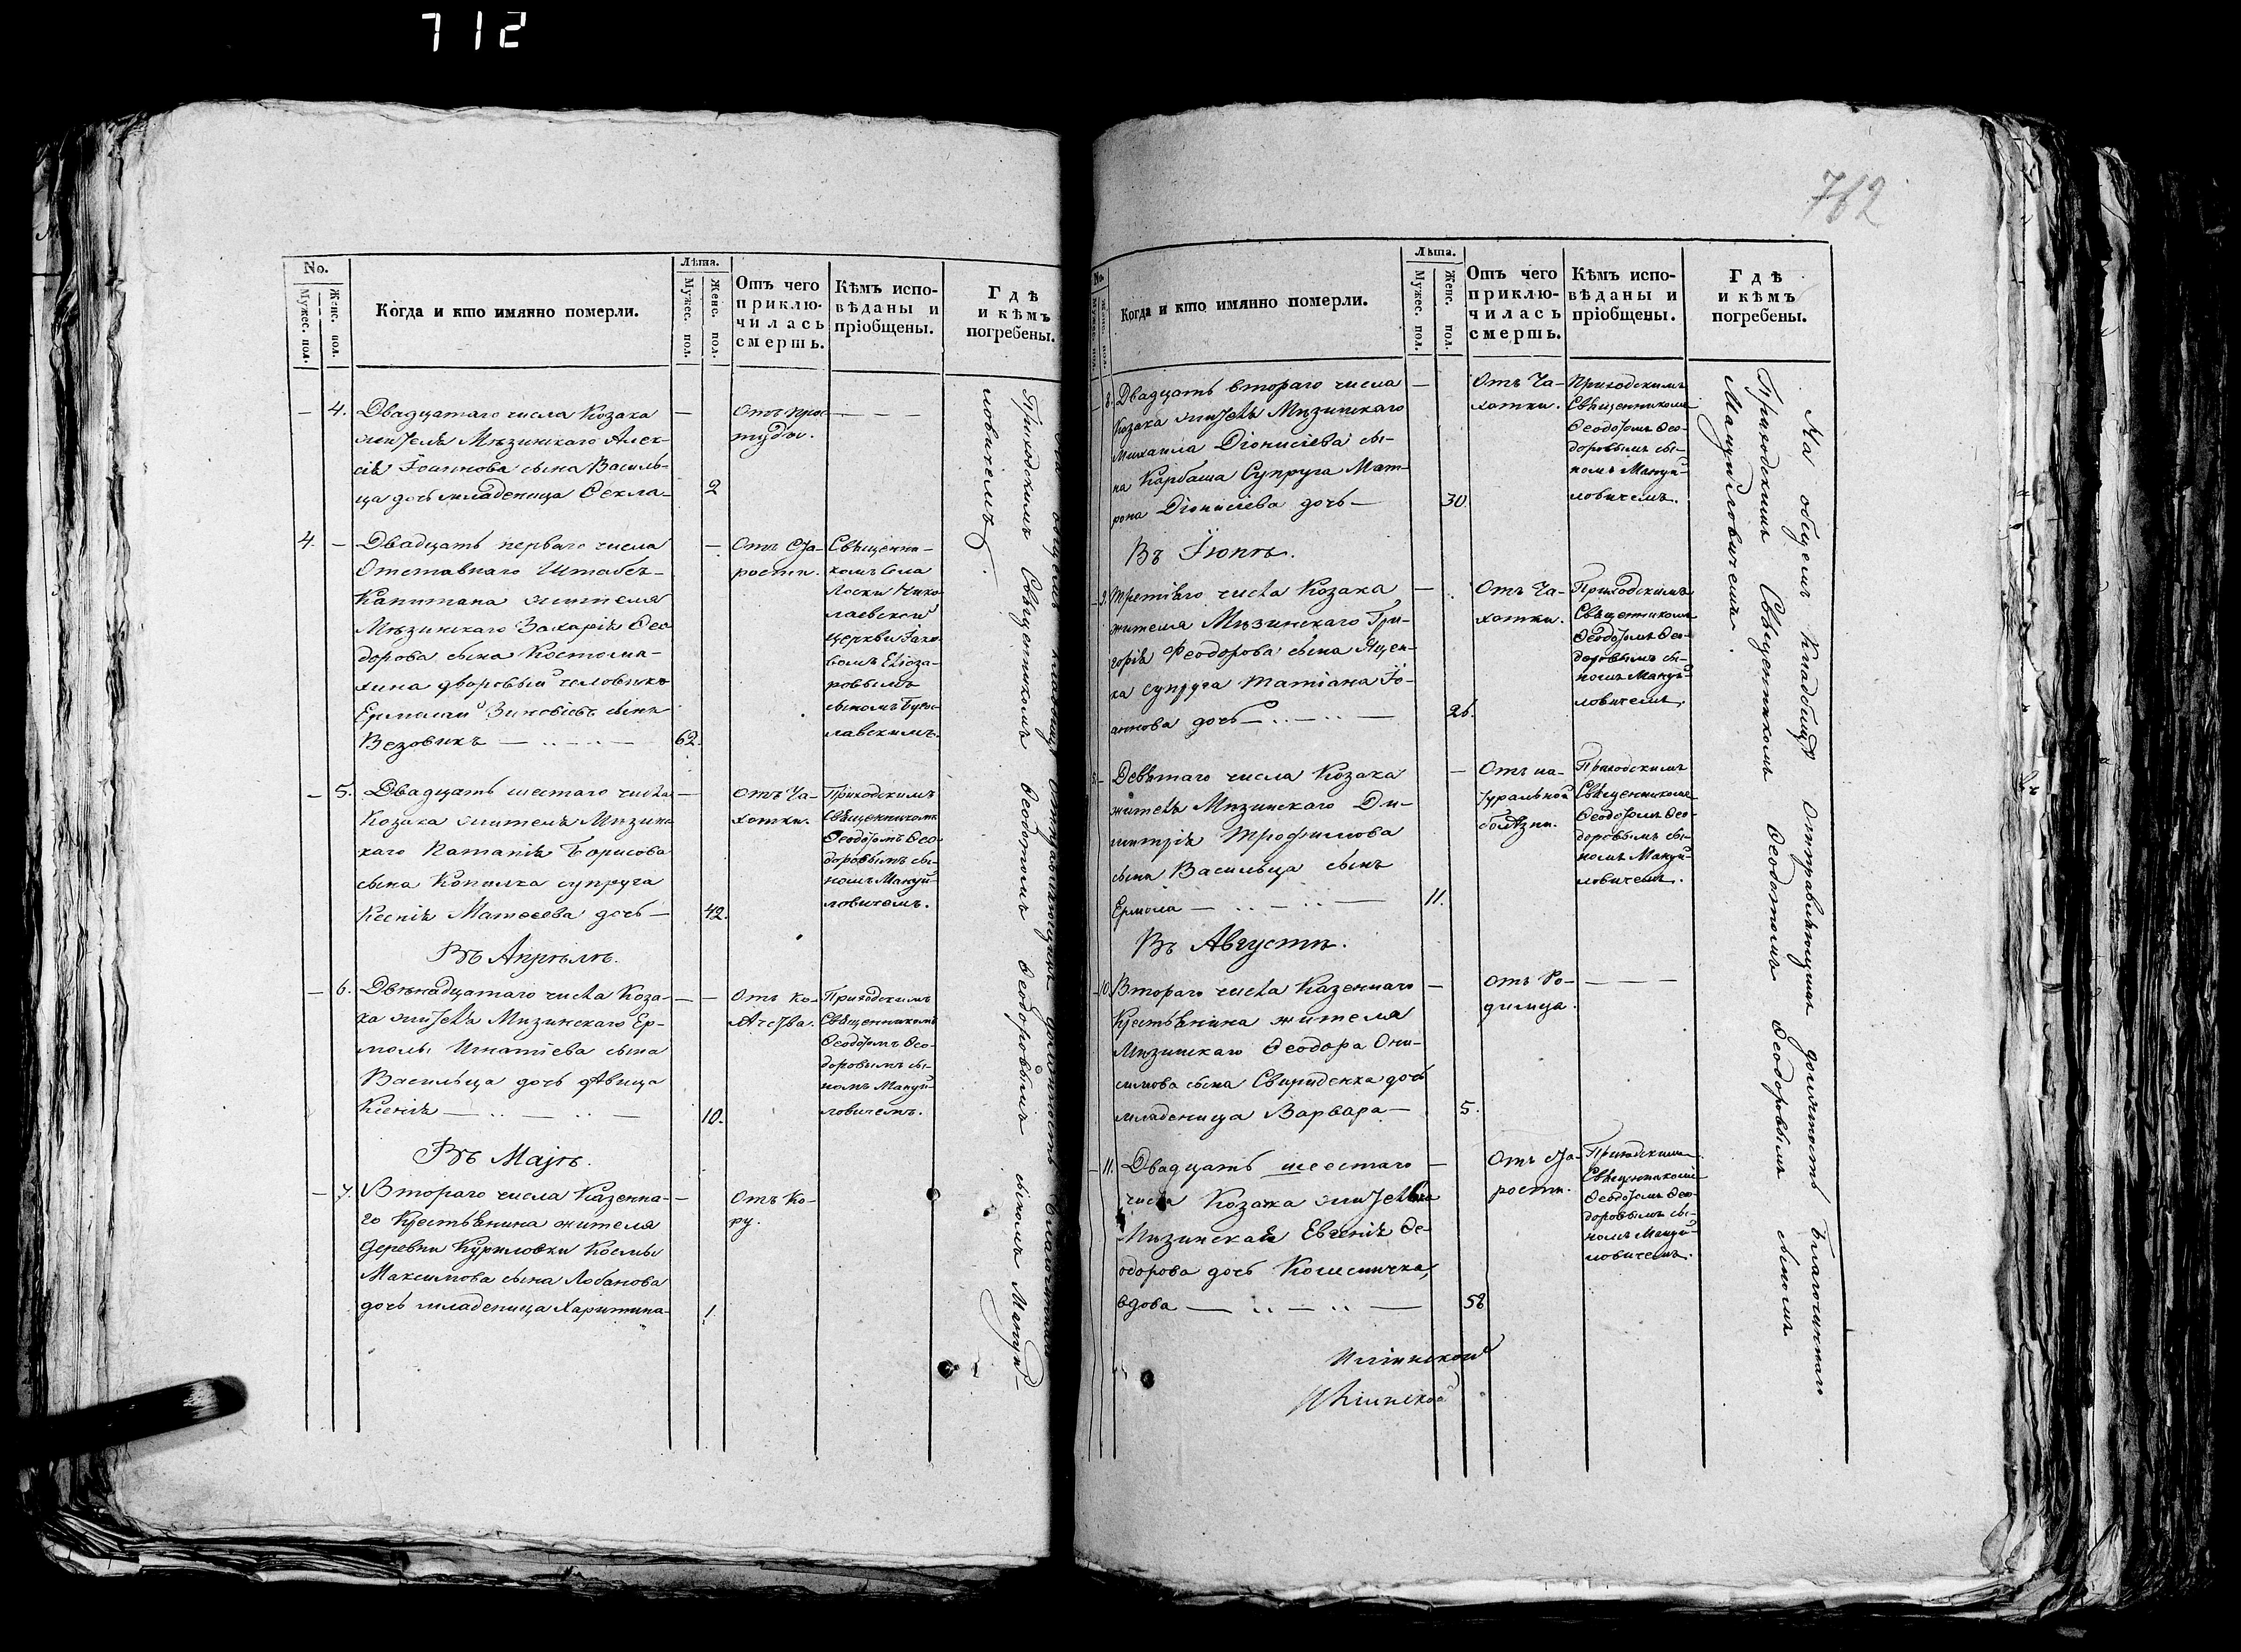 712
No.
Мужес. пол.
Женс. пол.
Когда и кто имянно померли.
Лѣта.
Мужес. пол.
Женс. пол.
Отъ чего
приклю-
чилась
смерть.
Кѣмъ испо-
вѣданы и
пріобщены.
Гдѣ
и кѣмъ
погребены.
— 4. Двадцатаго числа Козака —
жителя Мѣзинскаго Алек-
сія Іоаннова сына Василь-
ца дочь младеница Фекла — 2
Отъ прос-
туды.
— — —
4. — Двадцать перваго числа —
Отставнаго Штабсъ-
Капитана жителя
Мѣзинскаго Захарія Ѳео-
дорова сына Костома-
хина дворовый человѣкъ
Ермолай Зиновіевъ сынъ
Везовикъ — .. — .. — 62.
Отъ ста-
рости.
Священни-
комъ села
Лоски Нико-
лаевской
церкви Іако-
вомъ Еліоза-
ровымъ
сыномъ Буго-
лавскимъ.
— 5. Двадцать шестаго числа —
Козака жителя Мѣзинс-
каго Патапія Борисова
сына Копылка супруга
Ксенія Матѳеева дочь — 42.
Отъ Ча-
хотки.
Приходскимъ
Священникомъ
Ѳеодотомъ Ѳео-
доровымъ сы-
номъ Мануй-
ловичемъ.
Въ Апрѣлѣ.
— 6. Двѣнадцатаго числа Коза- — —
ка жителя Мизинскаго Ер-
молы Игнатіева сына
Васильца дочь дѣвица
Ксенія — .. — .. — 10.
Отъ ко-
лчства.
Приходскимъ
Священникомъ
Ѳеодотомъ Ѳео-
доровымъ сы-
номъ Мануй-
ловичемъ.
Въ Маіѣ.
— 7. Втораго числа Казенна- —
го Крестьянина жителя
деревни Куриловки Космы
Максимова сына Лобанова
дочь младеница Харитина — 1.
Отъ Ко-
ру.
общемъ кладбищѣ Отправляющимъ должность Благочиннаго
Приходскимъ Священникомъ Ѳеодотомъ Ѳеодоровымъ сыномъ Мануй-
ловичемъ.
762
No.
Когда и кто имянно померли.
Лѣта.
Мужес. пол.
Женс. пол.
Отъ чего
приклю-
чилась
смерть.
Кѣмъ испо-
вѣданы и
пріобщены.
Гдѣ
и кѣмъ
погребены.
— 8. Двадцать втораго числа —
Козака жителя Мизинскаго
Михаила Діонисіева сы-
на Карбаша Супруга Мат-
рона Діонисіева дочь — 30.
Отъ Ча-
хотки.
Приходскимъ
Священникомъ
Ѳеодотомъ Ѳео-
доровымъ сы-
номъ Мануй-
ловичемъ.
Въ Іюнѣ.
— 9. Третіяго числа Козака —
жителя Мѣзинскаго Гри-
горія Феодорова сына Ящен-
ка супруга Татіана Іо-
аннова дочь — .. — .. — 26.
Отъ Ча-
хотки.
Приходскимъ
Священникомъ
Ѳеодотомъ Ѳео-
доровымъ сы-
номъ Мануй-
ловичемъ.
5. — Девятаго числа Козака —
жителя Мизинскаго Ди-
митрія Трофимова
сына Васильца сынъ
Ермола — .. — .. — 11.
Отъ на-
туральной
болѣзни.
Приходскимъ
Священникомъ
Ѳеодотомъ Ѳео-
доровымъ сы-
номъ Мануй-
ловичемъ.
Въ Августѣ.
— 10. Втораго числа Казеннаго —
Крестьянина жителя
Мизинскаго Ѳеодора Они-
симова сына Свириденка дочь
младеница Варвара — 5.
Отъ Ро-
димца.
— — —
— 11. Двадцать шестаго —
числа Козака жителька
Мизинская Евгенія Ѳе-
одорова дочь Кошемичка,
вдова — .. — .. — 58
Отъ ста-
рости.
Приходскимъ
Священникомъ
Ѳеодотомъ Ѳео-
доровымъ сы-
номъ Мануй-
ловичемъ.
На общемъ кладбищѣ Отправляющимъ должность Благочиннаго
Приходскимъ Священникомъ Ѳеодотомъ Ѳеодоровымъ сыномъ
Мануйловичемъ.